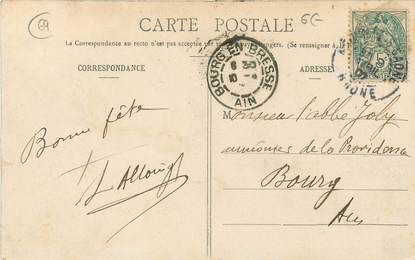 69
6E
CARTE POSTALE
La Correspondance au recto n'est pas acceptée par
(Se renseigner à
CORRESPONDANCE
ADRESSE
BOURG EN BRESSE
AIN
RHONE
Bonne fête
Monsieur l'abbé Joly
de la Providence
Bourg
Ain